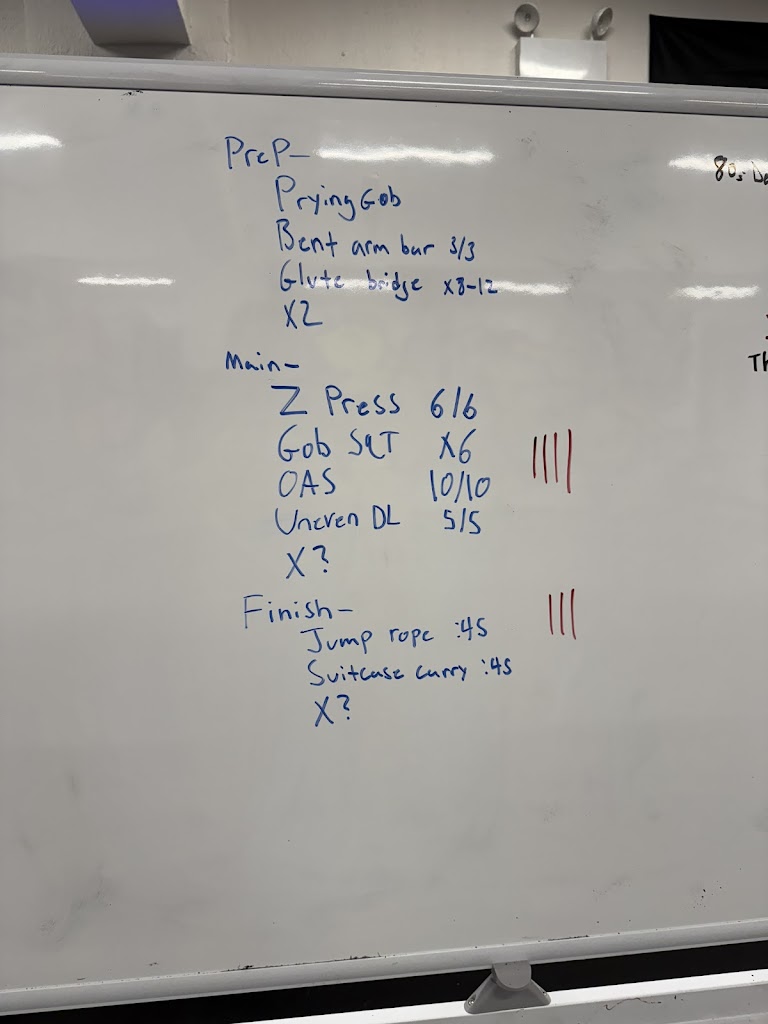 PreP-
Prying Gob
Bent arm bar 3/3
Glute bridge x8-12
X2
Main-
Z Press 6/6
Gob SQT X6
OAS 10/10
Uneven DL 5/5
X?
Finish-
Jump rope :45
Suitcase carry :45
X?
80s
Th